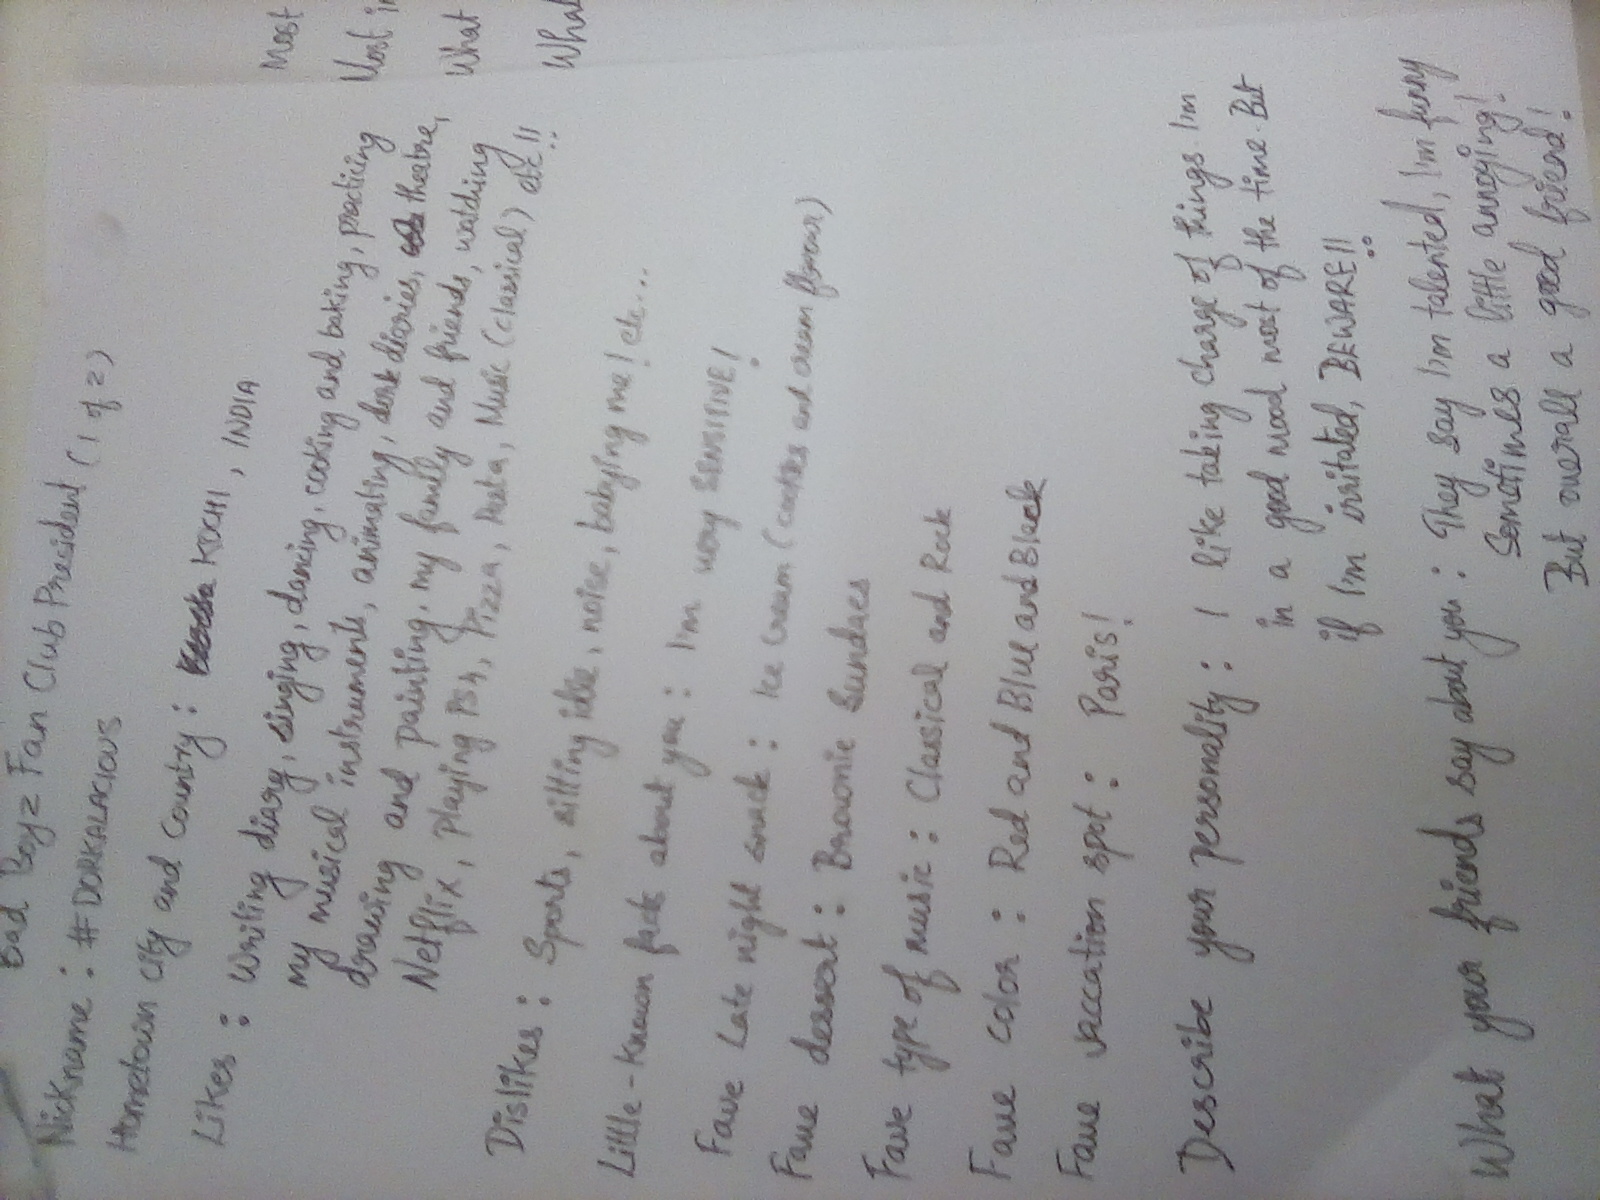 Bad Boyz Fan Club President (1 of 2)
Nickname : #DORKALACIOUS
Hometown city and Country : KOCHI, INDIA
Likes : Writing diary, singing, dancing, cooking and baking, practicing
my musical instruments, animating, dork diaries, theatre,
drawing and painting, my family and friends, watching
Netflix, playing PS4, Pizza, Pasta, Music (classical) etc!!
Dislikes : Sports, sitting idle, noise, babying me! etc...
Little-known facts about you : I'm very SENSITIVE!
Fave Late night snack : Ice Cream (cookies and cream flavour)
Fave dessert : Brownie Sundaes
Fave type of music : Classical and Rock
Fave color : Red and Blue and Black
Fave vaccation spot : Paris!
Describe your personality : I like taking charge of things. I'm
in a good mood most of the time. But
if I'm irritated, BEWARE!!
What your friends say about you : They say I'm talented, I'm funny
Sometimes a little annoying!
But overall a good friend!
Most
Most in
What
What